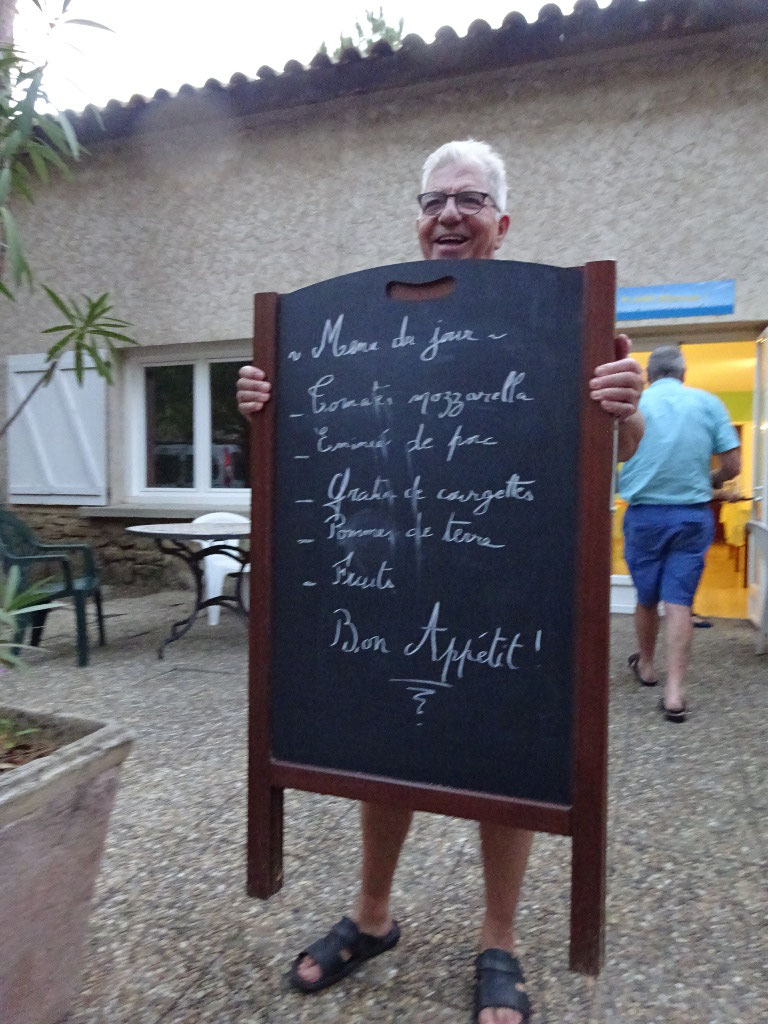 ~ Menu du jour ~
- Tomates mozzarella
- Émincé de porc
- Gratin de courgettes
- Pommes de terre
- Fruits
Bon Appétit !